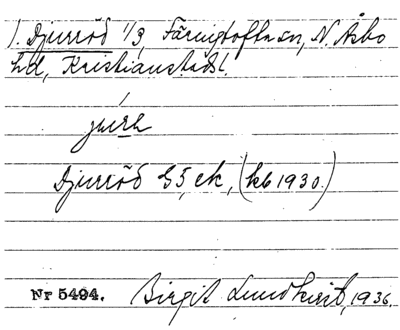 1. Djurröd 1/3, Färingtofta sn, N. Åsbo
hd, Kristianstads l.
Djurröd G5, ek, (kb 1930.)
Nr 5494. Birgit Lundkvist, 1936.